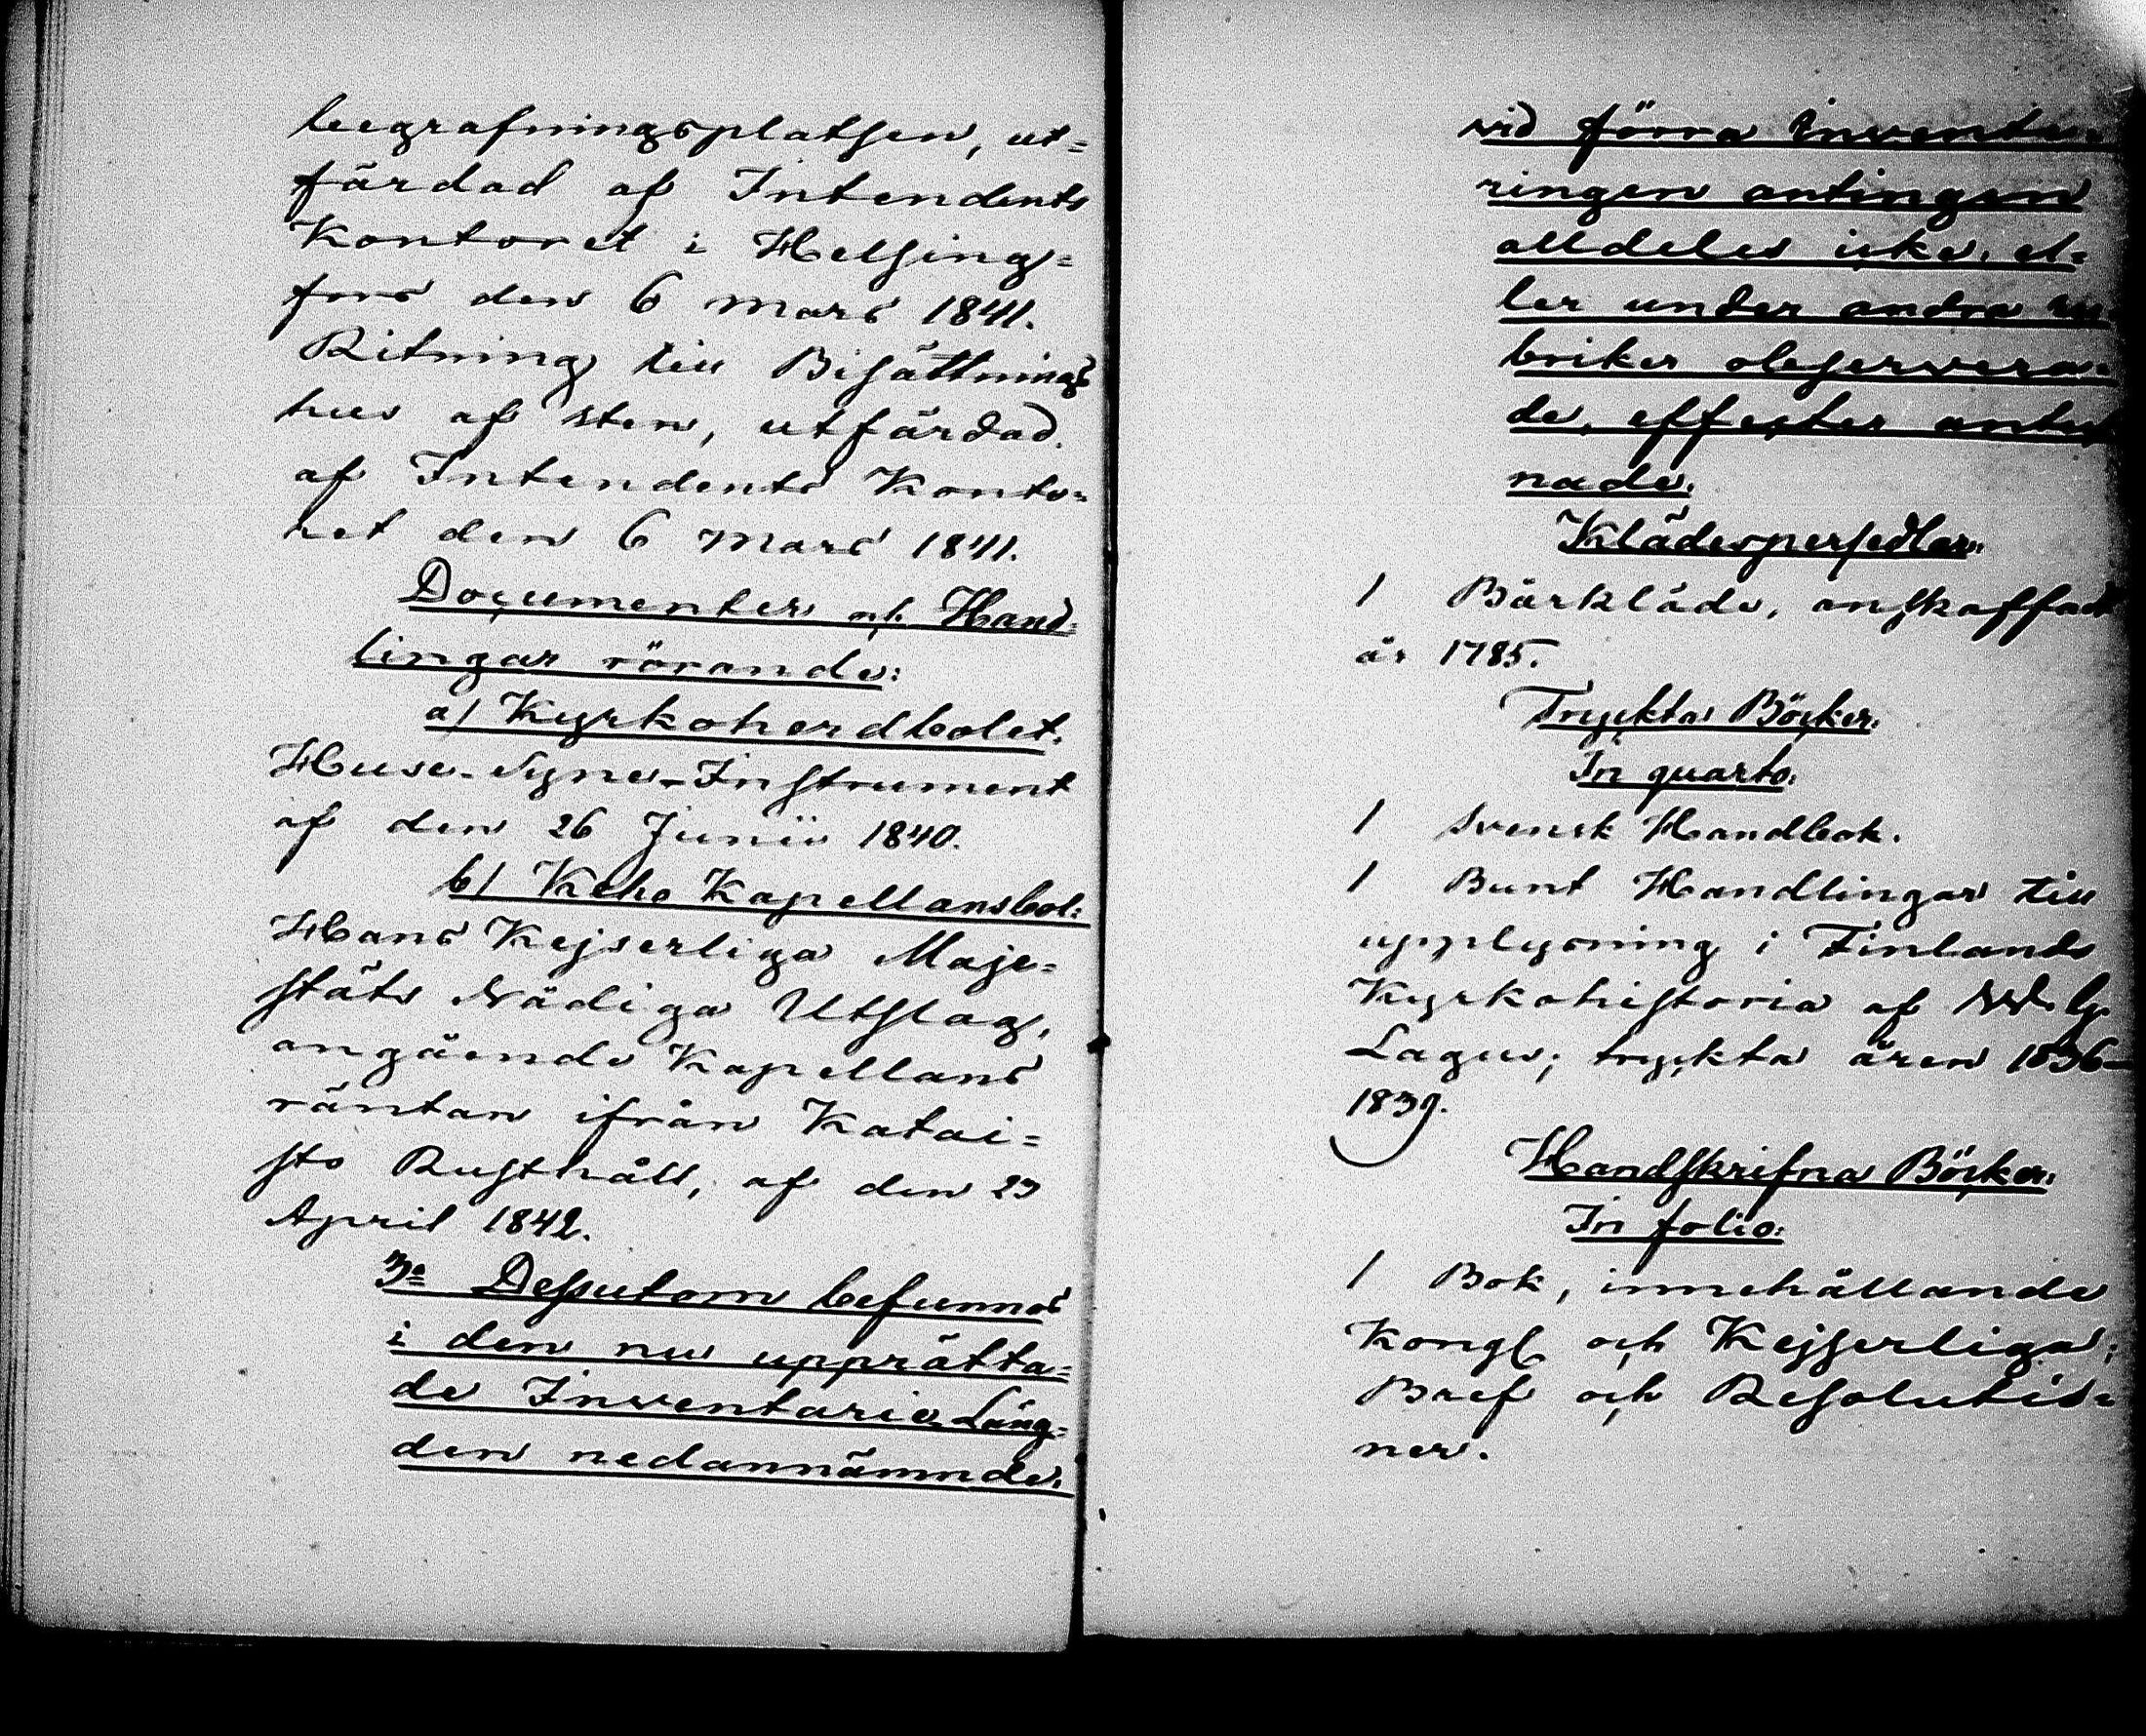 begrafningsplatsen, ut=
färdad af Intendents
Kontoret i Helsing=
fors den 6 Mars 1841.
Ritning till Bisättnings
hus af sten, utfärdad
af Intendents Konto=
ret den 6 Mars 1841.
Documenter och Hand=
lingar rörande:
a) Kyrkoherdbolet.
Huse-Syne-Instrument
af den 26 Junii 1840.
b) Keho Kapellansbol:
Hans Kejserliga Maje=
stäts Nådiga Utslag,
angående Kapellans
räntan ifrån Katai=
sto Rusthåll, af den 23
April 1842.
3o Dessutom befunnos
i den nu upprätta=
de Inventarie Läng=
den nedannämnde,
vid förra Inventu=
ringen antingen
alldeles icke, el=
ler under andra ru
briker observera=
de, effecter anteck
nade.
Klädespersedlar:
1 Bårkläde, anskaffadt
år 1785.
Tryckta Böcker:
In quarto:
1 Svensk Handbok.
1 Bunt Handlingar till
upplysning i Finlands
Kyrkohistoria af W. G.
Lagus; tryckta åren 1836-
1839.
Handskrifna Böcker:
In folio:
1 Bok, innehållande
Kongl. och Kejserliga
Bref och Resolutio=
ner.